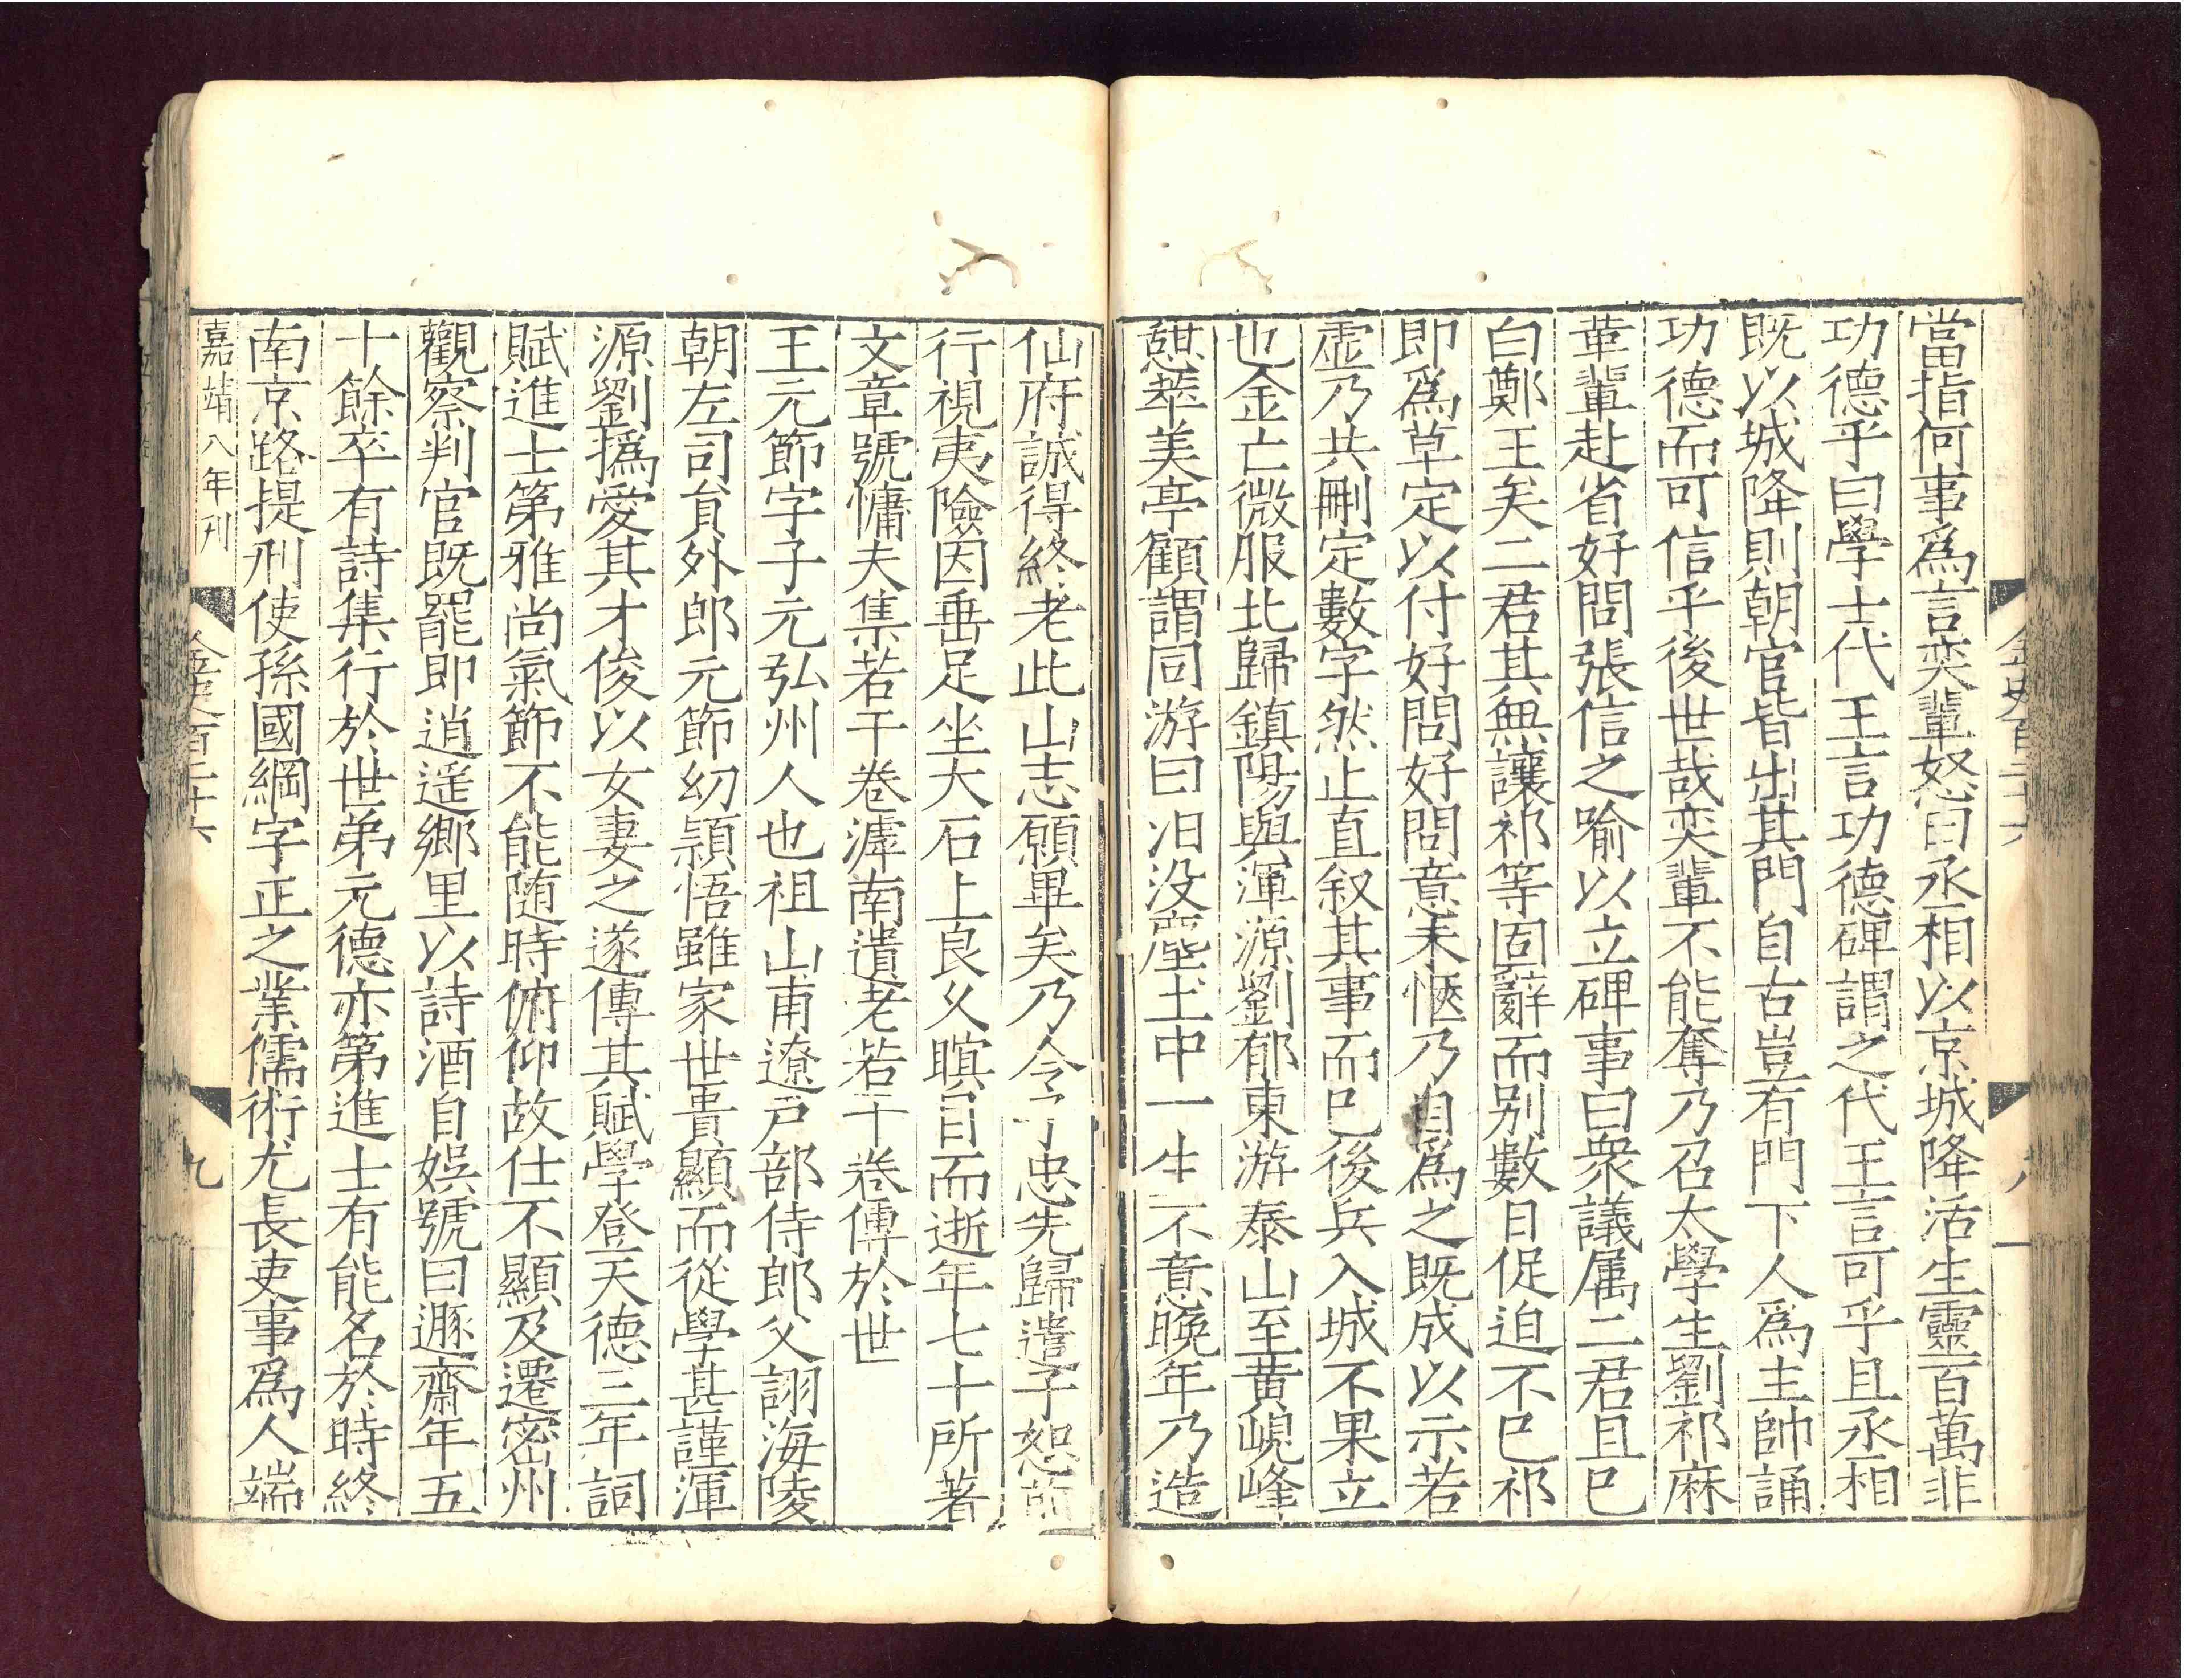 金史百二十六
八
當指何事爲言奕輩怒曰丞相以京城降活生靈百萬非
功德乎曰學士代王言功德碑謂之代王言可乎且丞相
既以城降則朝官皆出其門自古豈有門下人爲主帥誦
功德而可信乎後世哉奕輩不能奪乃召太學生劉祁麻
革輩赴省好問張信之喻以立碑事曰衆議属二君且已
白鄭王矣二君其無讓祁等固辭而别數日促迫不已祁
即爲草定以付好問好問意未愜乃自爲之既成以示若
虛乃共刪定數字然止直叙其事而已後兵入城不果立
也金亡微服北歸鎮陽與渾源劉郁東游泰山至黄峴峰
憇萃美亭顧謂同游曰汨没塵土中一生不意晚年乃造
仙府誠得終老此山志願畢矣乃令子忠先歸遣子恕前
行視夷險因垂足坐大石上良乆瞑目而逝年七十所著
文章號慵夫集若干卷滹南遺老若干卷傳於世
王元節字子元弘州人也祖山甫遼户部侍郎父詡海陵
朝左司貟外郎元節幼頴悟雖家世貴顯而從學甚謹渾
源劉撝愛其才俊以女妻之遂傳其賦學登天德三年詞
賦進士第雅尚氣節不能随時俯仰故仕不顯及遷密州
觀察判官既罷即逍遥鄉里以詩酒自娯號曰遯齋年五
十餘卒有詩集行於世弟元德亦第進士有能名於時終
南京路提刑使孫國綱字正之業儒術尤長吏事爲人端
嘉靖八年刋
金史百二十六
九